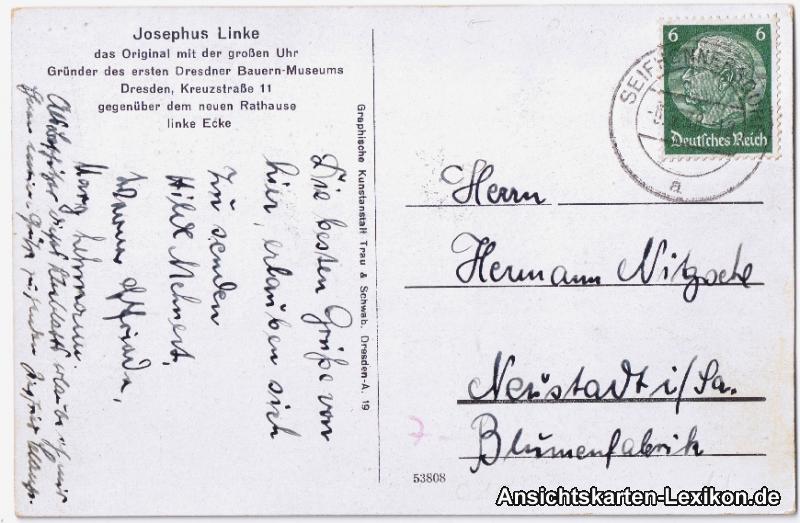 Josephus Linke
das Original mit der großen Uhr
Gründer des ersten Dresdner Bauern-Museums
Dresden, Kreuzstraße 11
gegenüber dem neuen Rathause
linke Ecke
Graphische Kunstanstalt Trau & Schwab, Dresden-A. 19
Die besten Grüße von
hier, erlauben sich
zu senden
Hilde Mehnert,
Marg. Lehmann.
6 6
Deutsches Reich
SEIFHENNERSDORF
a
Herrn
Hermann Nitzsche
Neustadt i/Sa.
Blumenfabrik
7
53808
Ansichtskarten-Lexikon.de